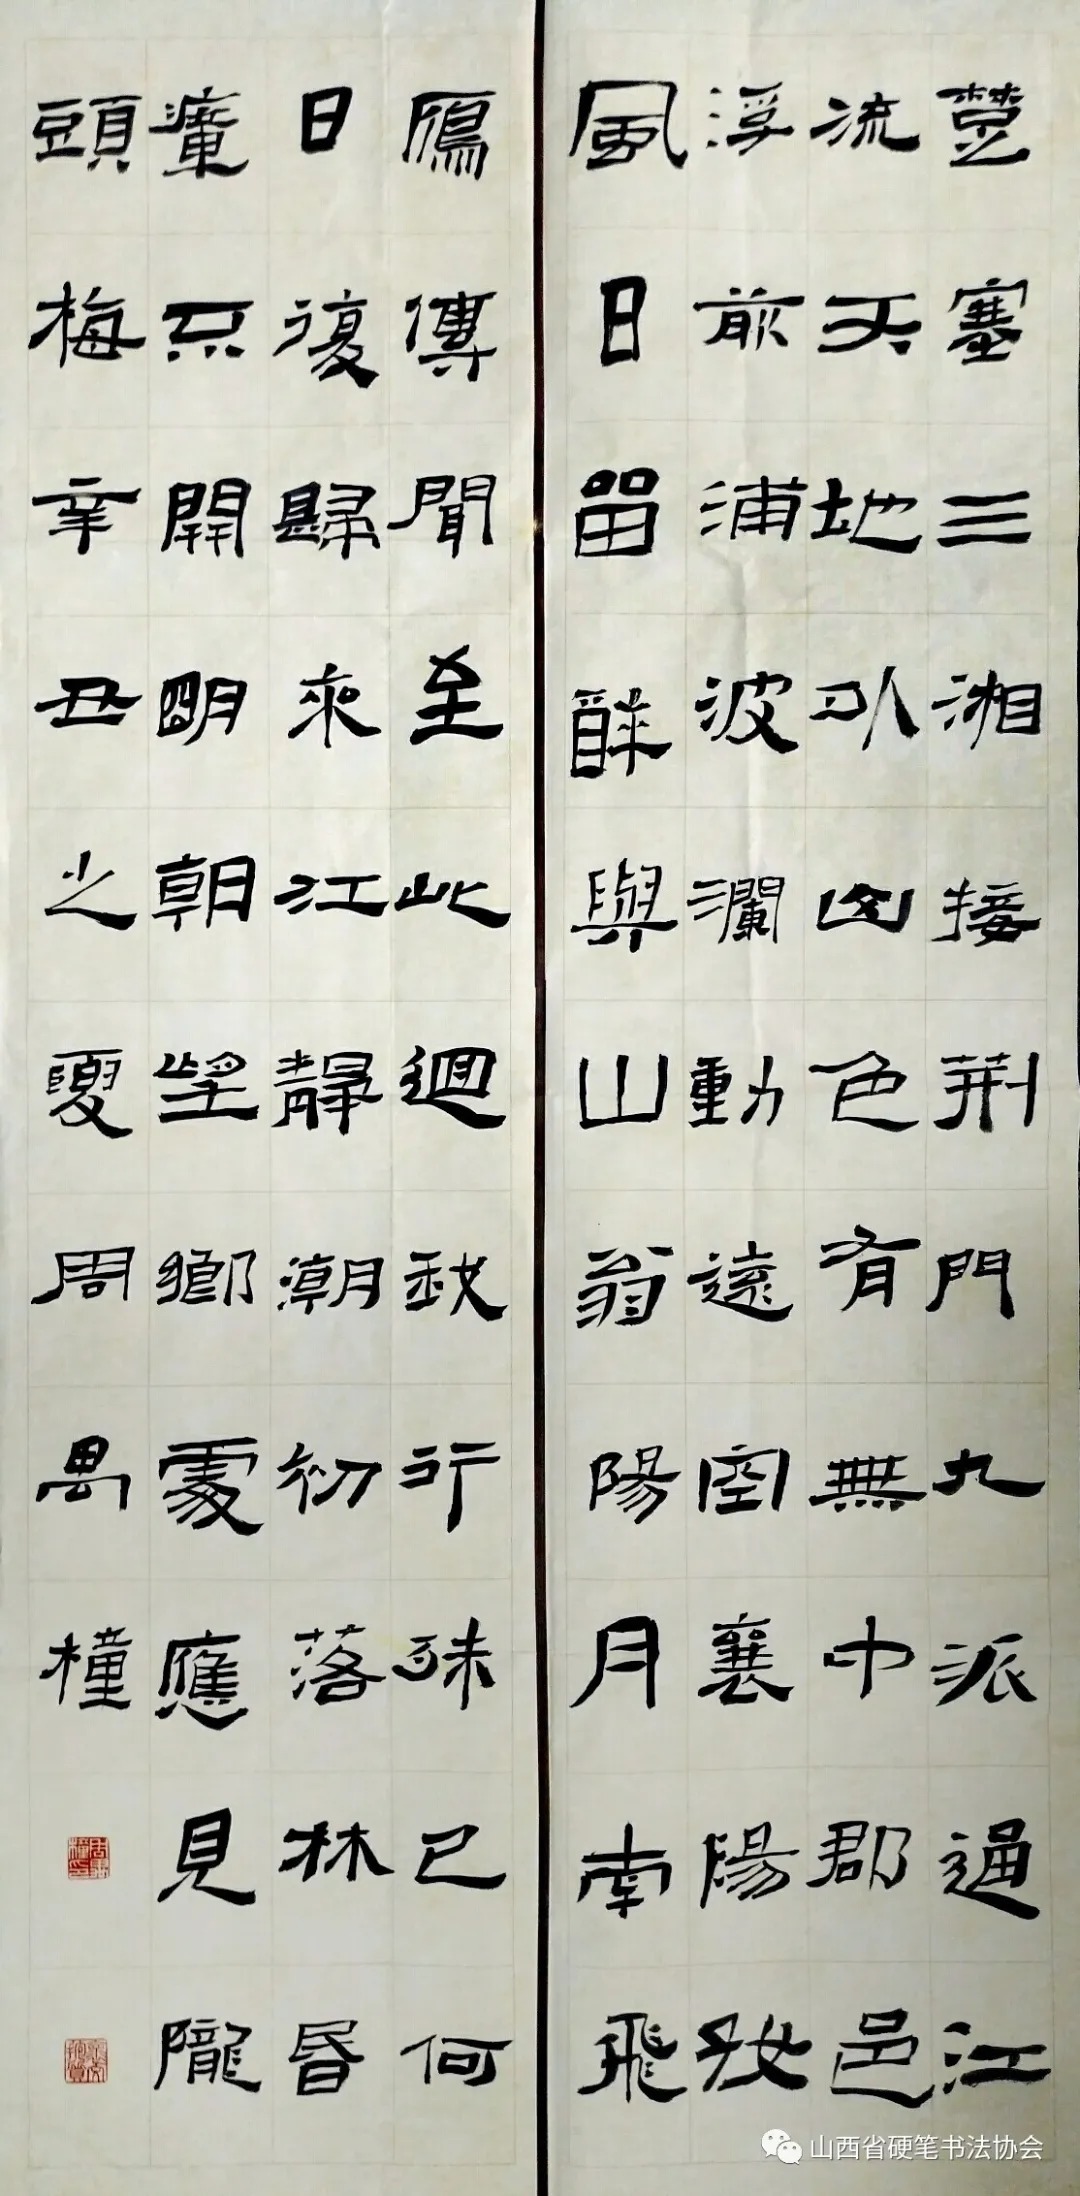 楚塞三湘接荆門九派通江
流天地外山色有無中郡邑
浮前浦波瀾動遠空襄陽好
風日留醉與山翁陽月南飛
鴈傳聞至此迴我行殊已何
日復歸來江靜潮初落林昏
瘴不開明朝望鄉處應見隴
頭梅辛丑之夏周禺橦
山西省硬笔书法协会